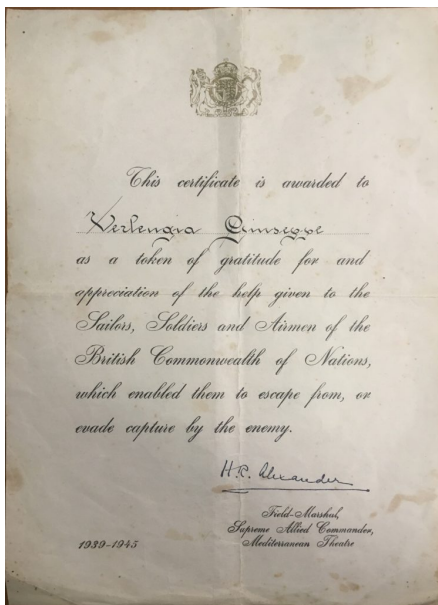 This certificate is awarded to
Verlengia Giuseppe
as a token of gratitude for and
appreciation of the help given to the
Sailors, Soldiers and Airmen of the
British Commonwealth of Nations,
which enabled them to escape from, or
evade capture by the enemy.
H.R. Alexander
Field-Marshal,
Supreme Allied Commander,
Mediterranean Theatre
1939-1945